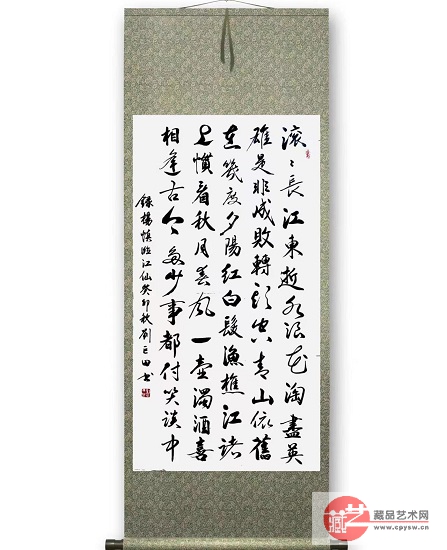 滚〻長江東逝水浪花淘盡英
雄是非成敗轉頭空青山依舊
在幾度夕陽紅白髮漁樵江渚
上慣看秋月春風一壺濁酒喜
相逢古今〻多少事都付笑談中
錄楊慎臨江仙癸卯秋劉巨田书
藏品艺术网
www.cpysw.cn